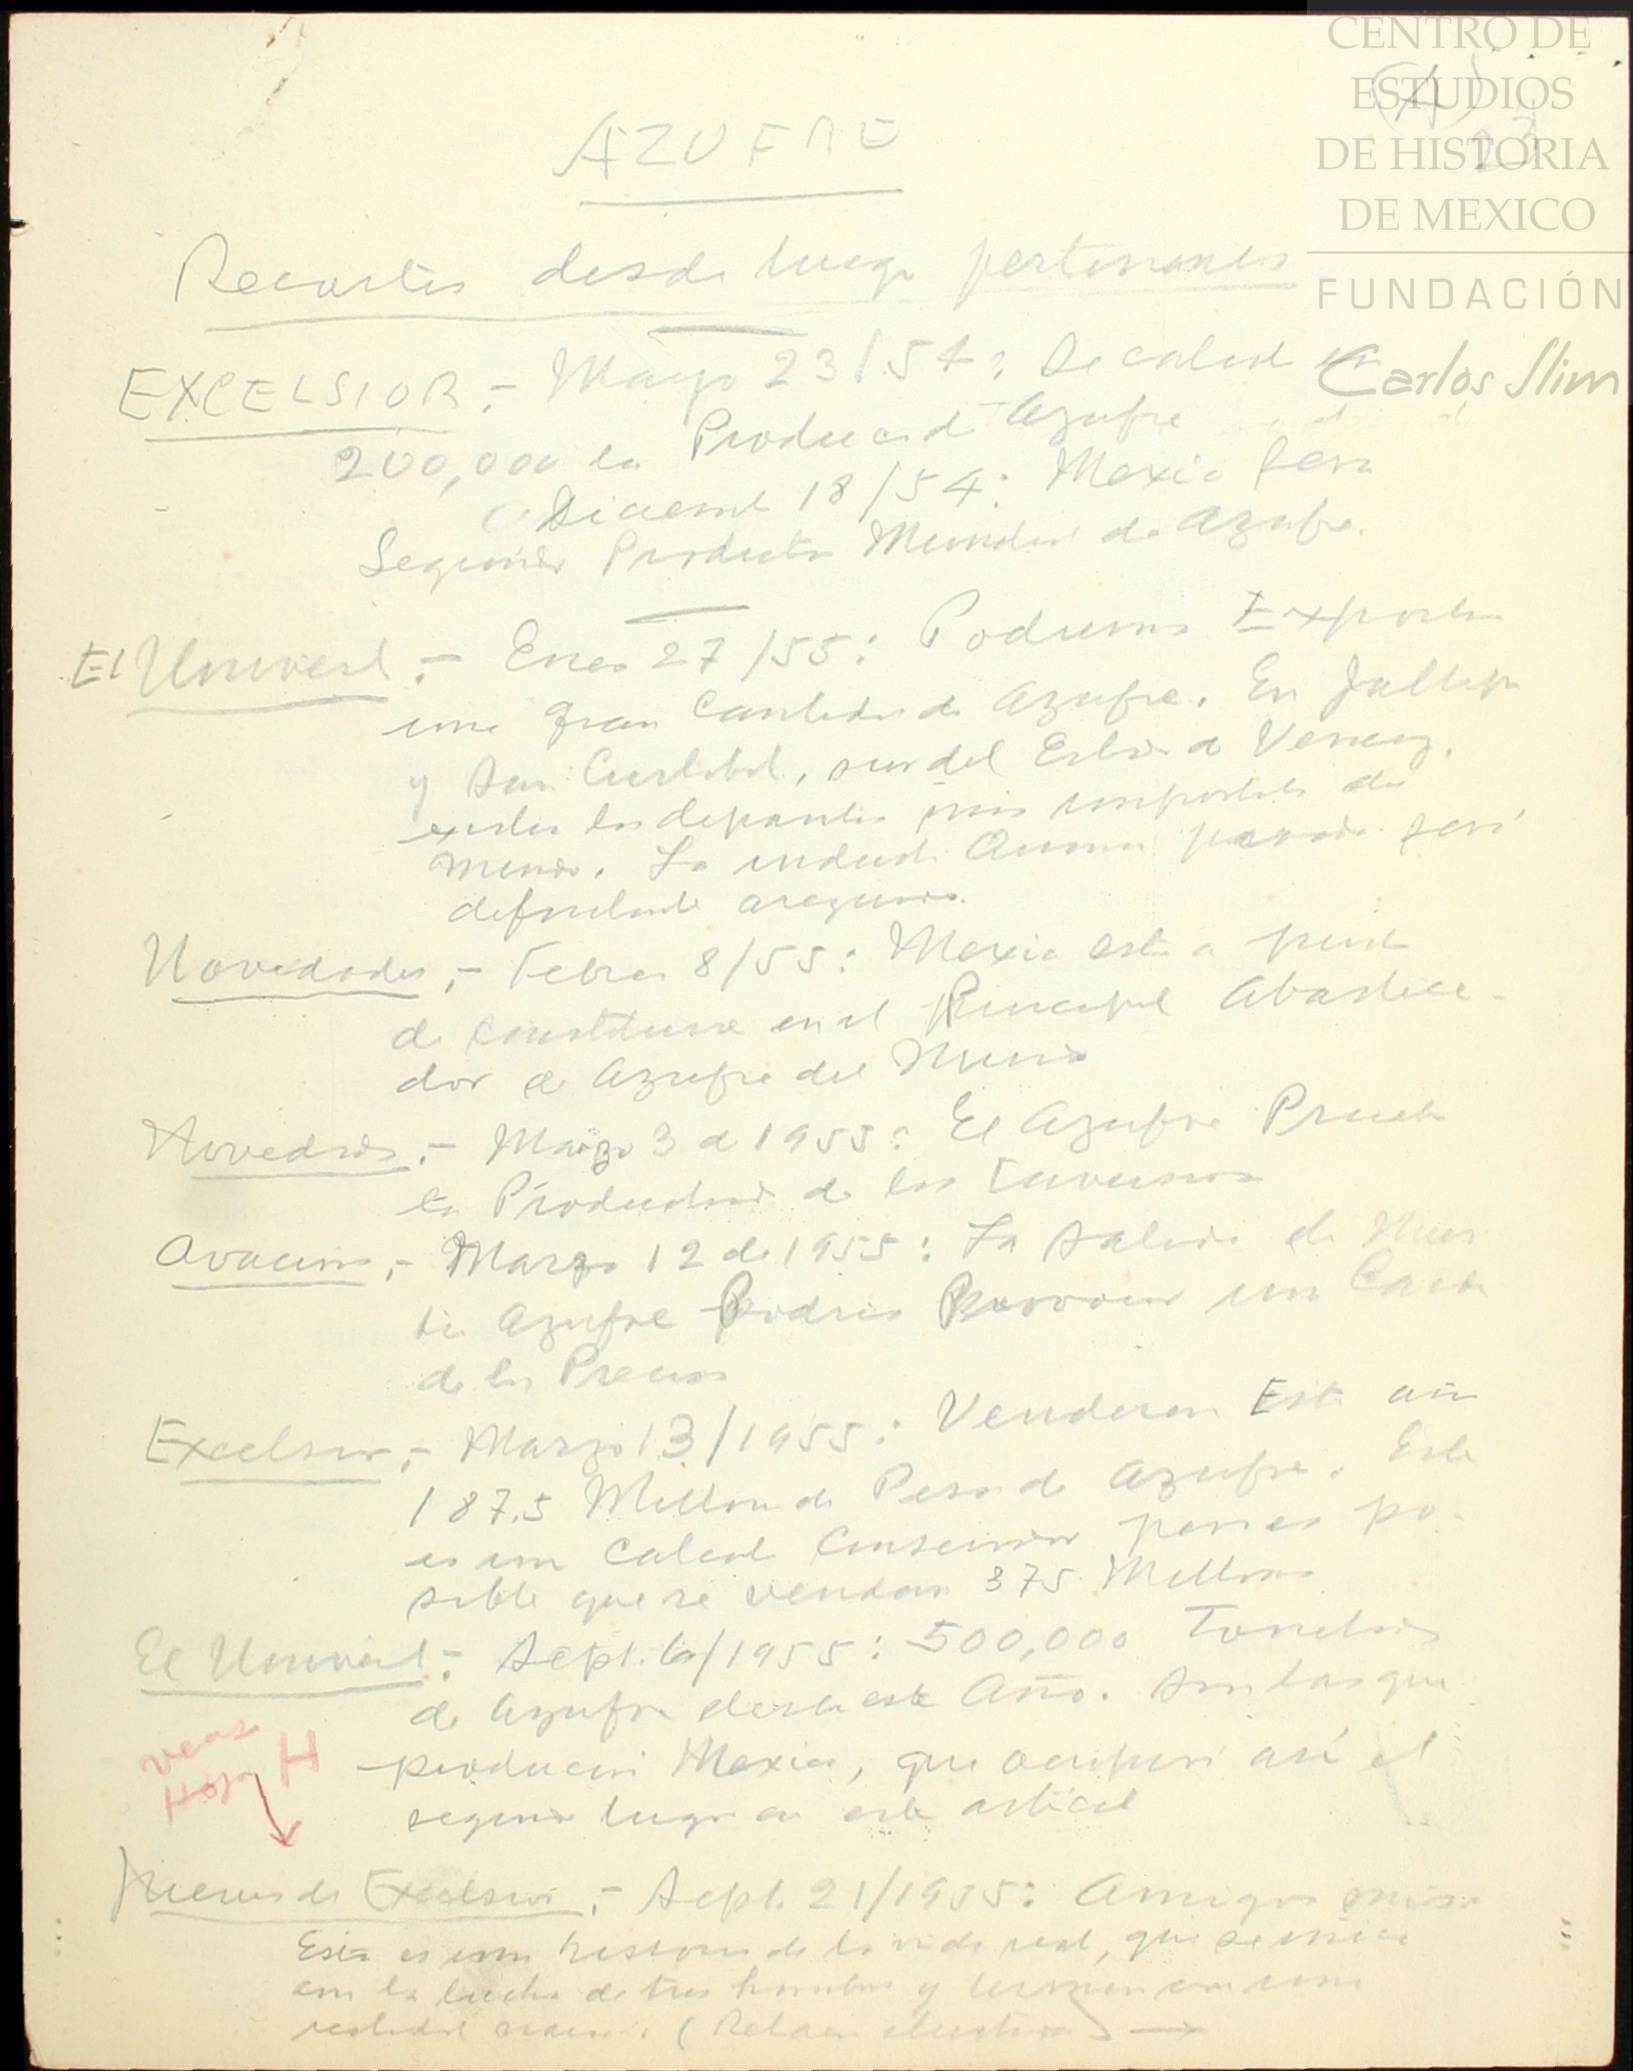 CENTRO DE
ESTUDIOS
DE HISTORIA
DE MEXICO
FUNDACIÓN
Carlos Slim
(A)
23
AZUFRE
Recortes desde luego pertinentes
EXCELSIOR.- Mayo 23/54: Se calcula en
200,000 la Produc. de Azufre
Diciemb 18/54: Mexico Sera
Segundo Productor Mundial de Azufre.
El Universal.- Enero 27/55: Podremos Exportar
una Gran Cantidad de Azufre. En Jaltipan
y San Cristobal, sur del Estado de Veracruz,
existen los depositos mas importantes del
mundo. La industria Quimica pesada será
definitivamente asegurada.
Novedades.- Febrero 8/55: Mexico está a punto
de constituirse en el Principal Abastece-
dor de Azufre del Mundo
Novedades.- Marzo 3 de 1955: El Azufre Prueba
la Productividad de las Inversiones
Ovaciones.- Marzo 12 de 1955: La Salida de Nues
tro Azufre Podria Provocar una Caida
de los Precios
Excelsior.- Marzo 13/1955: Venderan Este año
187.5 Millones de Pesos de Azufre. Este
es un Calculo Conservador pues es po-
sible que se vendan 375 Millones
El Universal.- Sept. 6/1955: 500,000 Toneladas
de Azufre durante este Año. Son las que
producirá Mexico, que ocupará así el
segundo lugar en este articulo
vease
Hoja H
Jueves de Excelsior.- Sept. 21/1955: Amigos mios:
Esta es una historia de la vida real, que se inicia
con la lucha de tres hombres y termina con una
realidad. (Relación